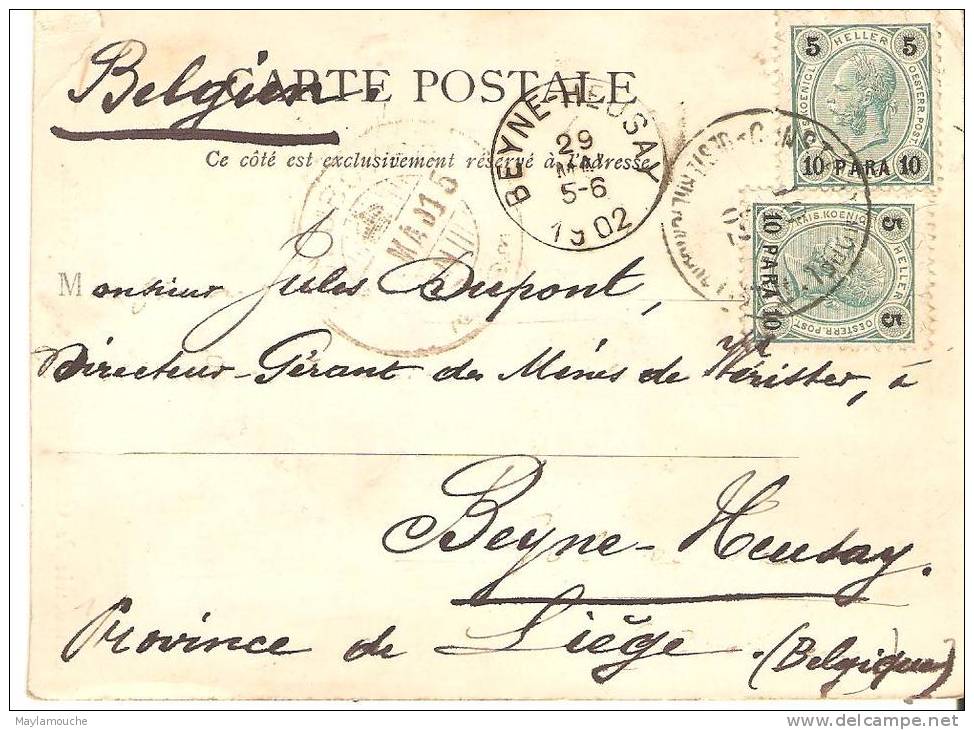 Belgien.
CARTE POSTALE
Ce côté est exclusivement réservé à l'adresse
BEYNE-HEUSAY
29
MAI
5-6
1902
5 HELLER 5
KAIS. KOENIGL. OESTERR. POST
10 PARA 10
5 HELLER 5
KAIS. KOENIGL. OESTERR. POST
10 PARA 10
Monsieur Jules Dupont,
Directeur-Gérant des Mines de Wérister, à
Beyne-Heusay.
Province de Liège. (Belgique)
Maylamouche